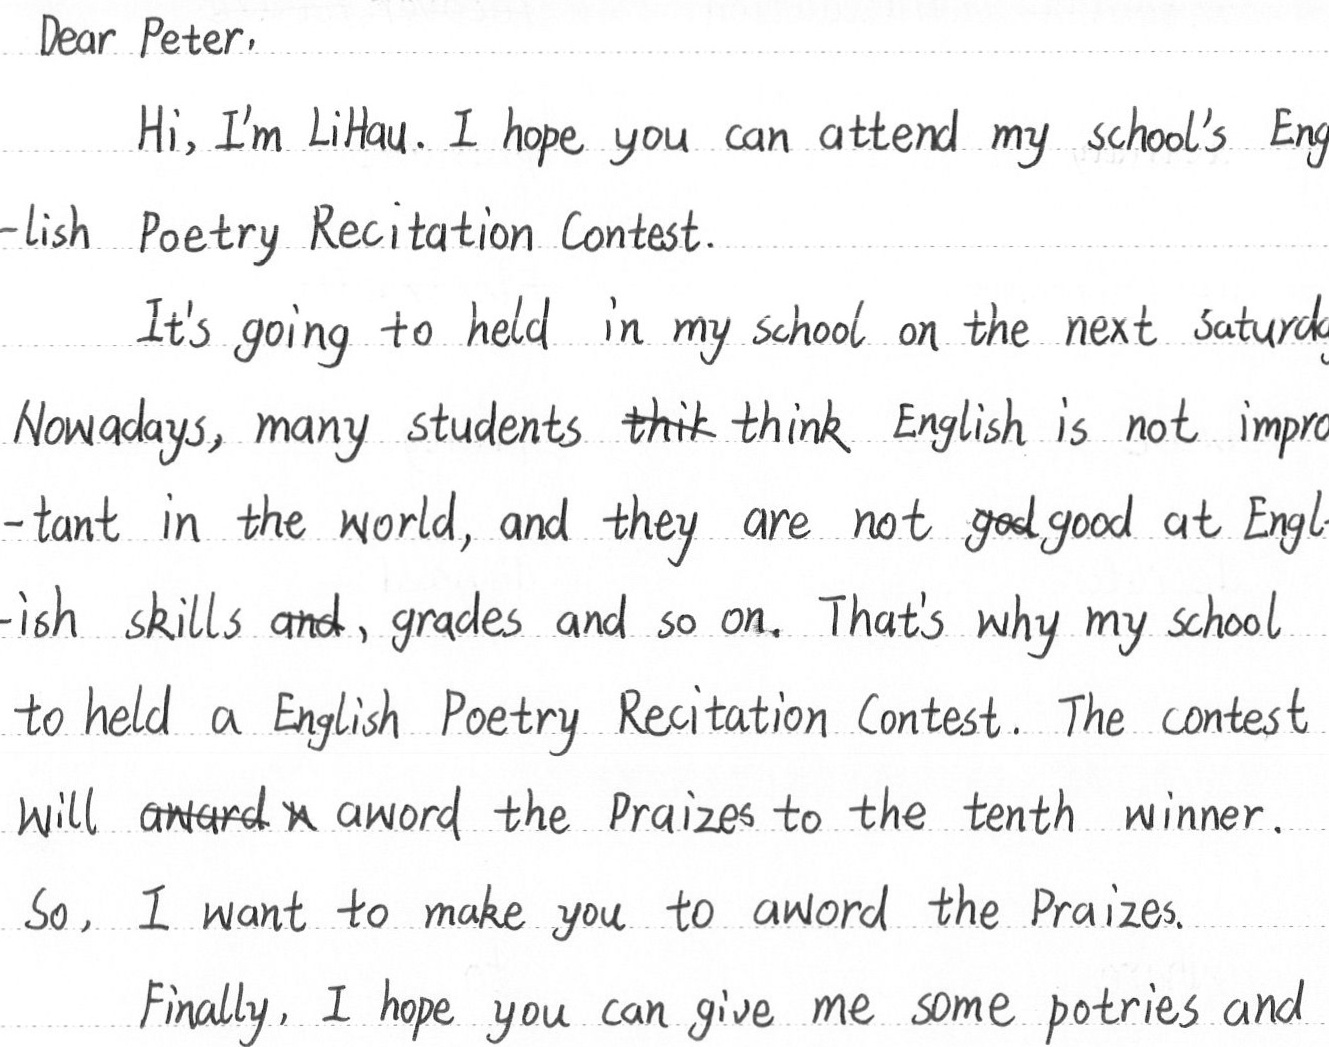 Dear Peter,
Hi, I'm LiHau. I hope you can attend my school's Eng
-lish Poetry Recitation Contest.
It's going to held in my school on the next Saturda
Nowadays, many students thik think English is not impro
-tant in the world, and they are not god good at Engl-
-ish skills and, grades and so on. That's why my school
to held a English Poetry Recitation Contest. The contest
will award aword the Praizes to the tenth winner.
So, I want to make you to aword the Praizes.
Finally, I hope you can give me some potries and